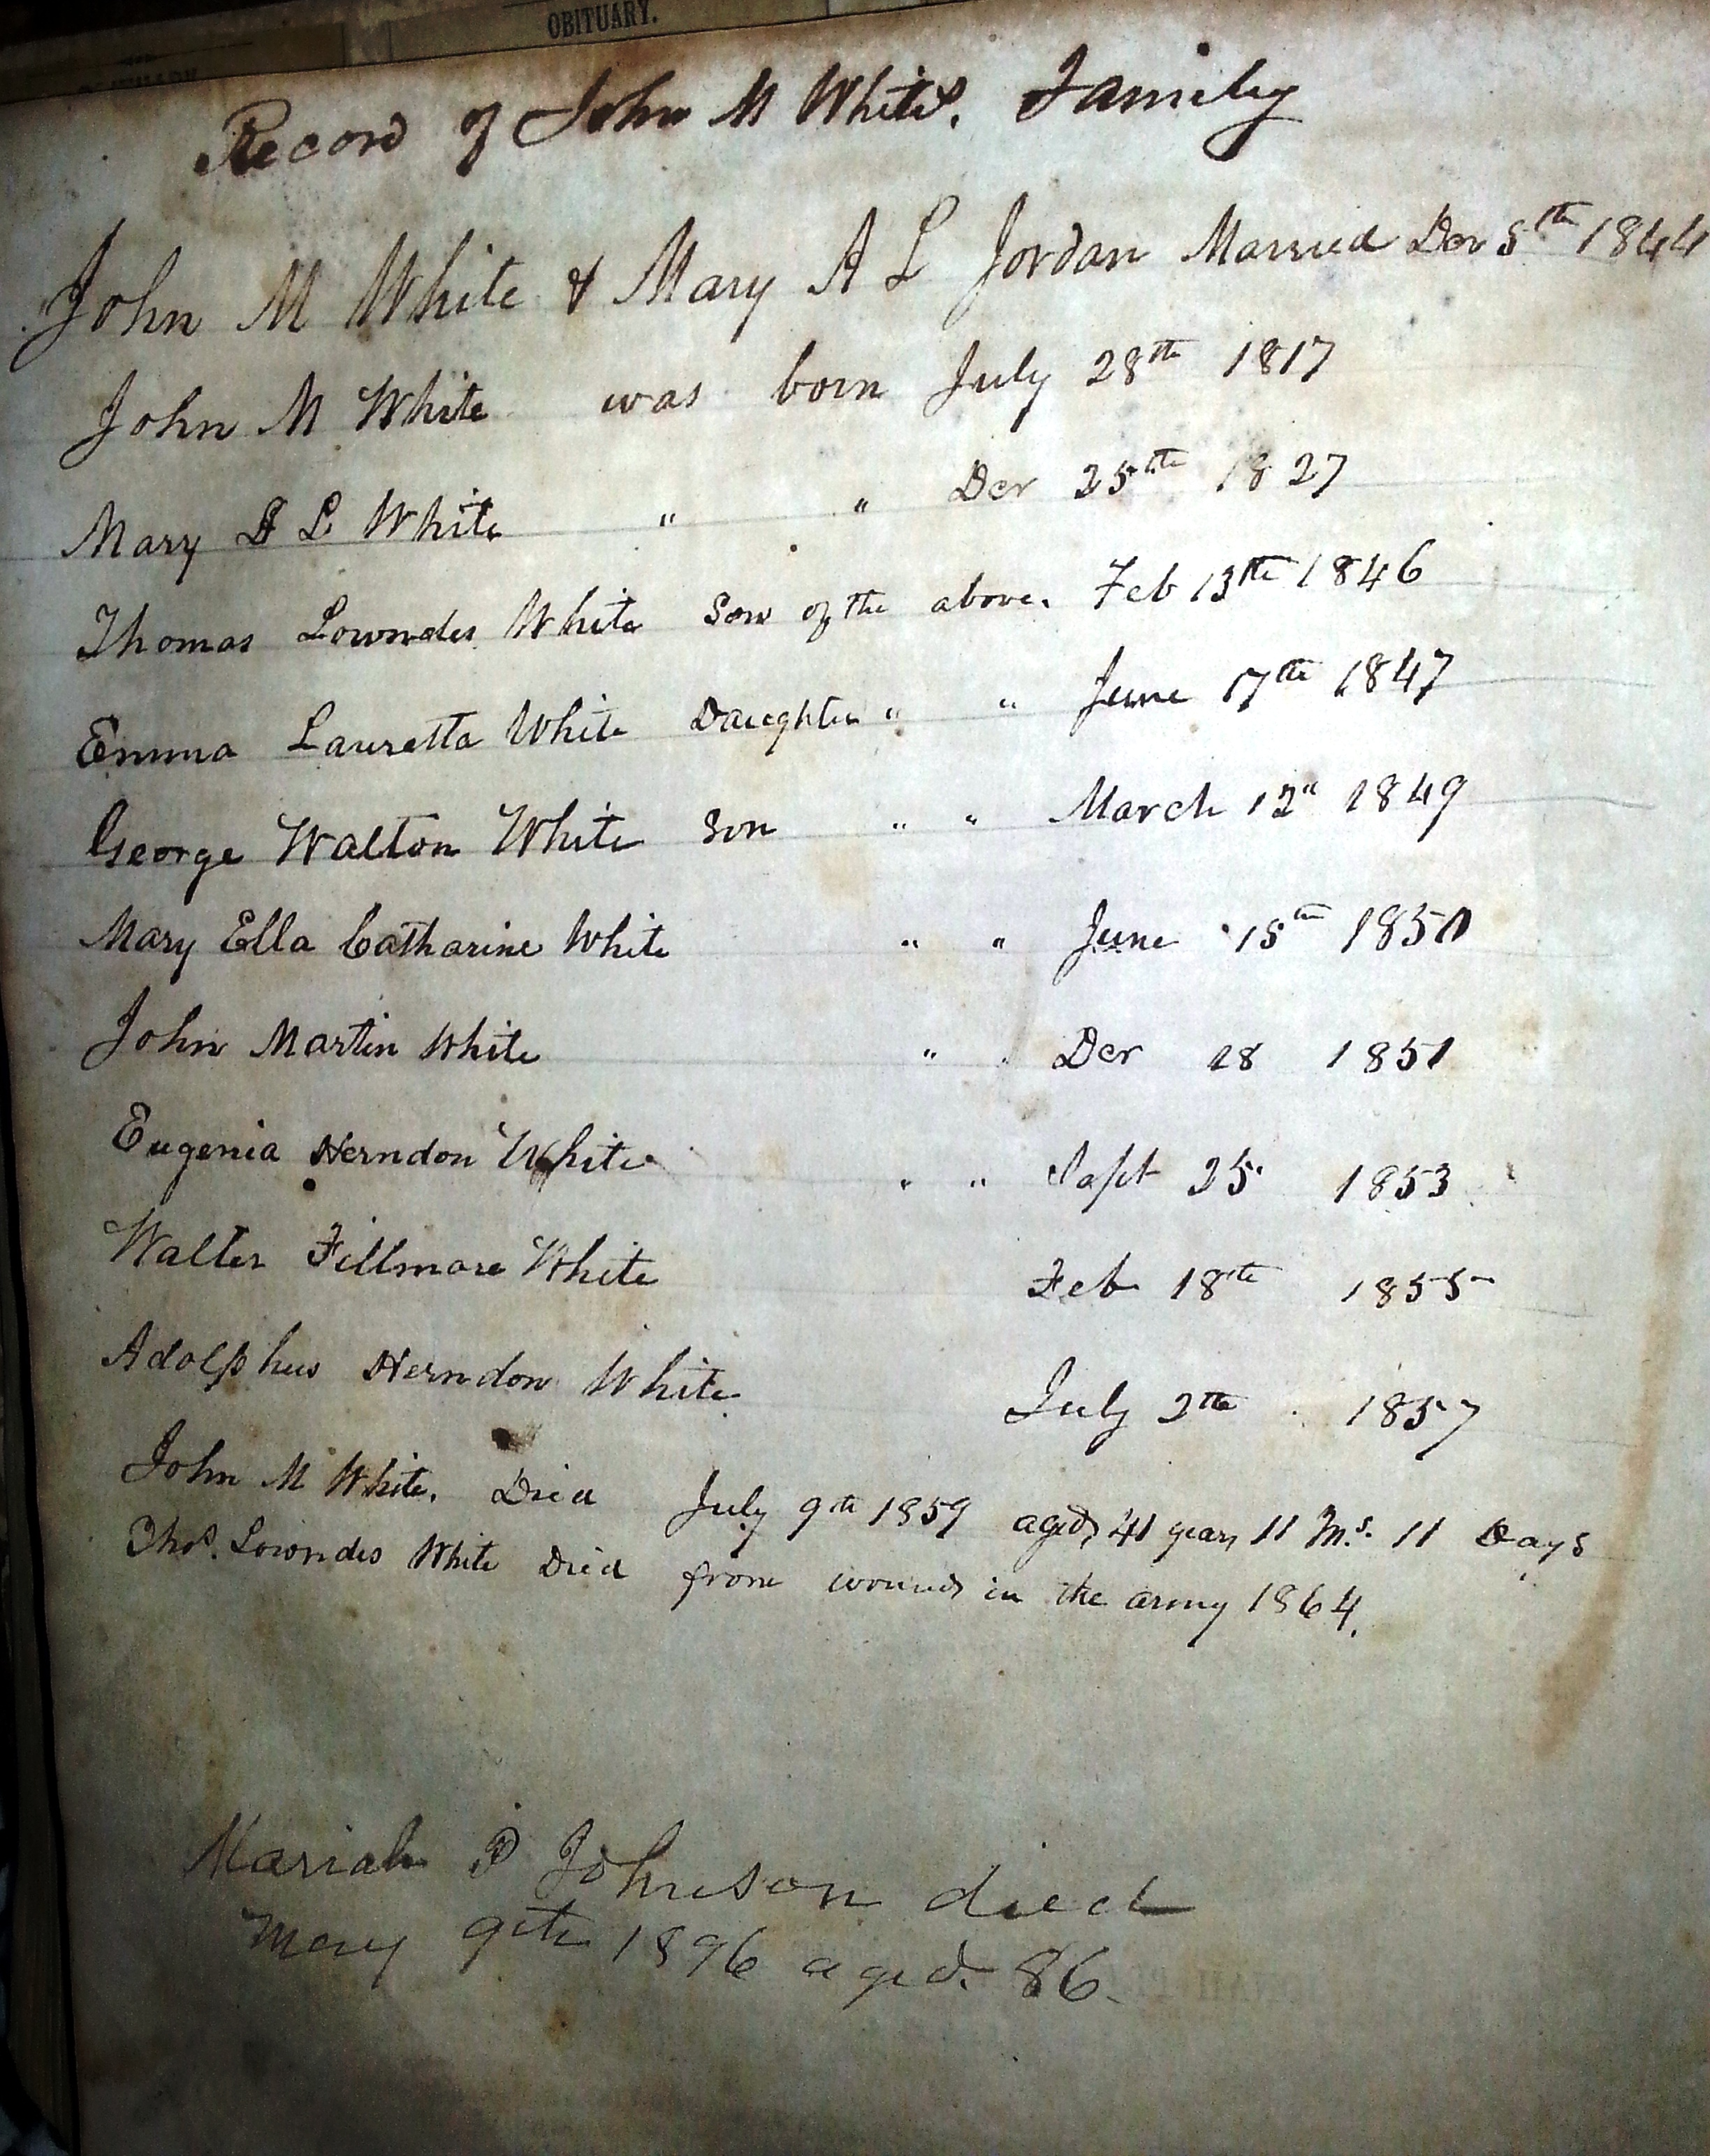 OBITUARY.
Record of John M Whites. Family
John M White & Mary A L Jordan Married Dec 5th 1844
John M White was born July 28th 1817
Mary A L White " " Dec 25th 1827
Thomas Lowndes White Son of the above. Feb 13th 1846
Emma Lauretta White Daughter " " June 17th 1847
George Walton White Son " " March 12" 1849
Mary Ella Catharine White " " June 15th 1850
John Martin White " " Dec 28 1851
Eugenia Herndon White " " Sept 25 1853
Walter Fillmore White Feb 18th 1855
Adolphus Herndon White July 2th 1857
John M White. Died July 9th 1859 aged 41 years 11 Ms. 11 Days
Thos. Lowndes White Died from wounds in the army 1864.
Mariah P Johnson died
May 9th 1896 aged. 86.